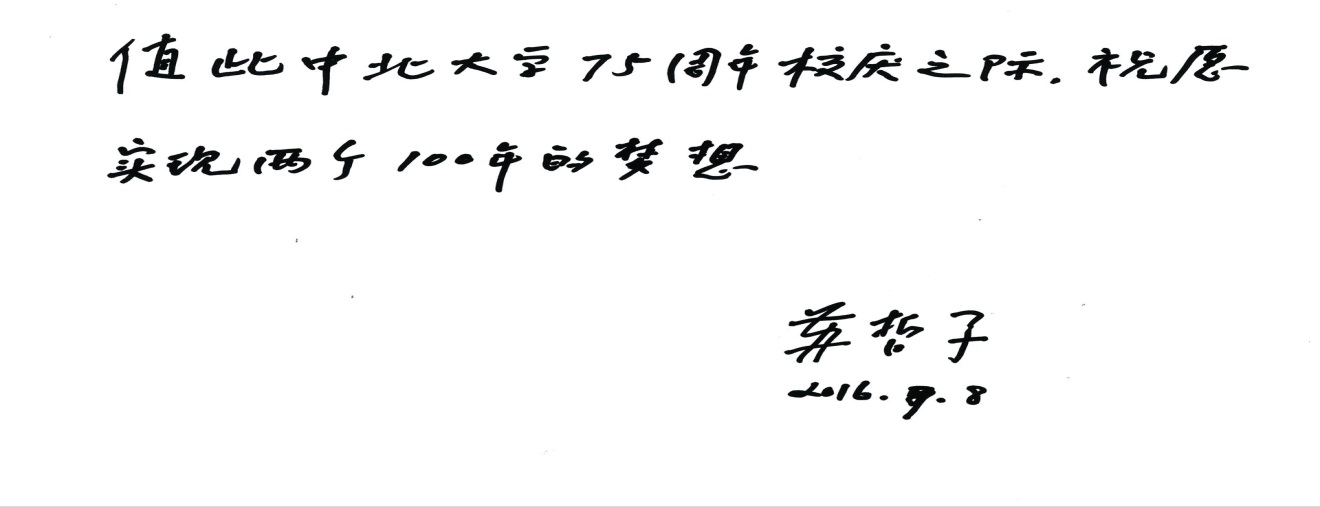 值此中北大学75周年校庆之际.祝愿
实现两个100年的梦想
苏哲子
2016.9.8